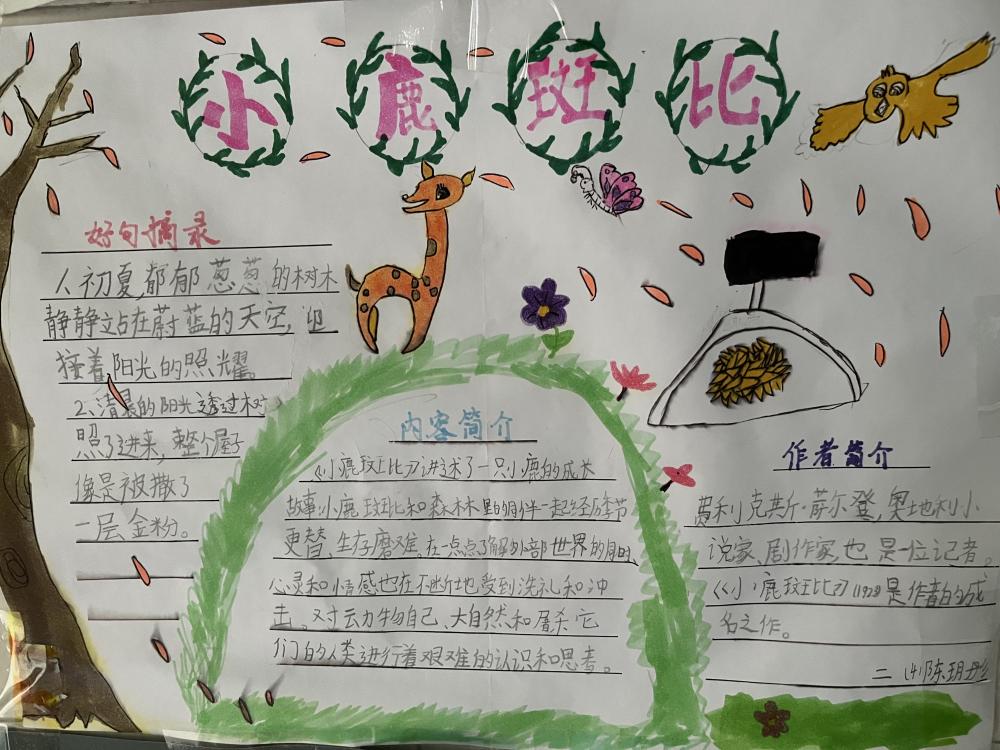 小鹿斑比
好句摘录
1、初夏,郁郁葱葱的树木
静静立占在蔚蓝的天空,迎
接着阳光的照耀。
2、清晨的阳光透过树
照了进来,整个屋子
像是被撒了
一层金粉。
内容简介
《小鹿斑比》讲述了一只小鹿的成长
故事:小鹿斑比和森林里的伙伴一起经历季节
更替、生存磨难,在一点点了解外部世界的同时,
心灵和情感也在不断地受到洗礼和冲
击。对动物自己、大自然和屠杀它
们的人类进行着艰难的认识和思考。
作者简介
费利克斯·萨尔登,奥地利小
说家、剧作家,也是一位记者。
《小鹿斑比》(1923)是作者的成
名之作。
二(4)陈玥